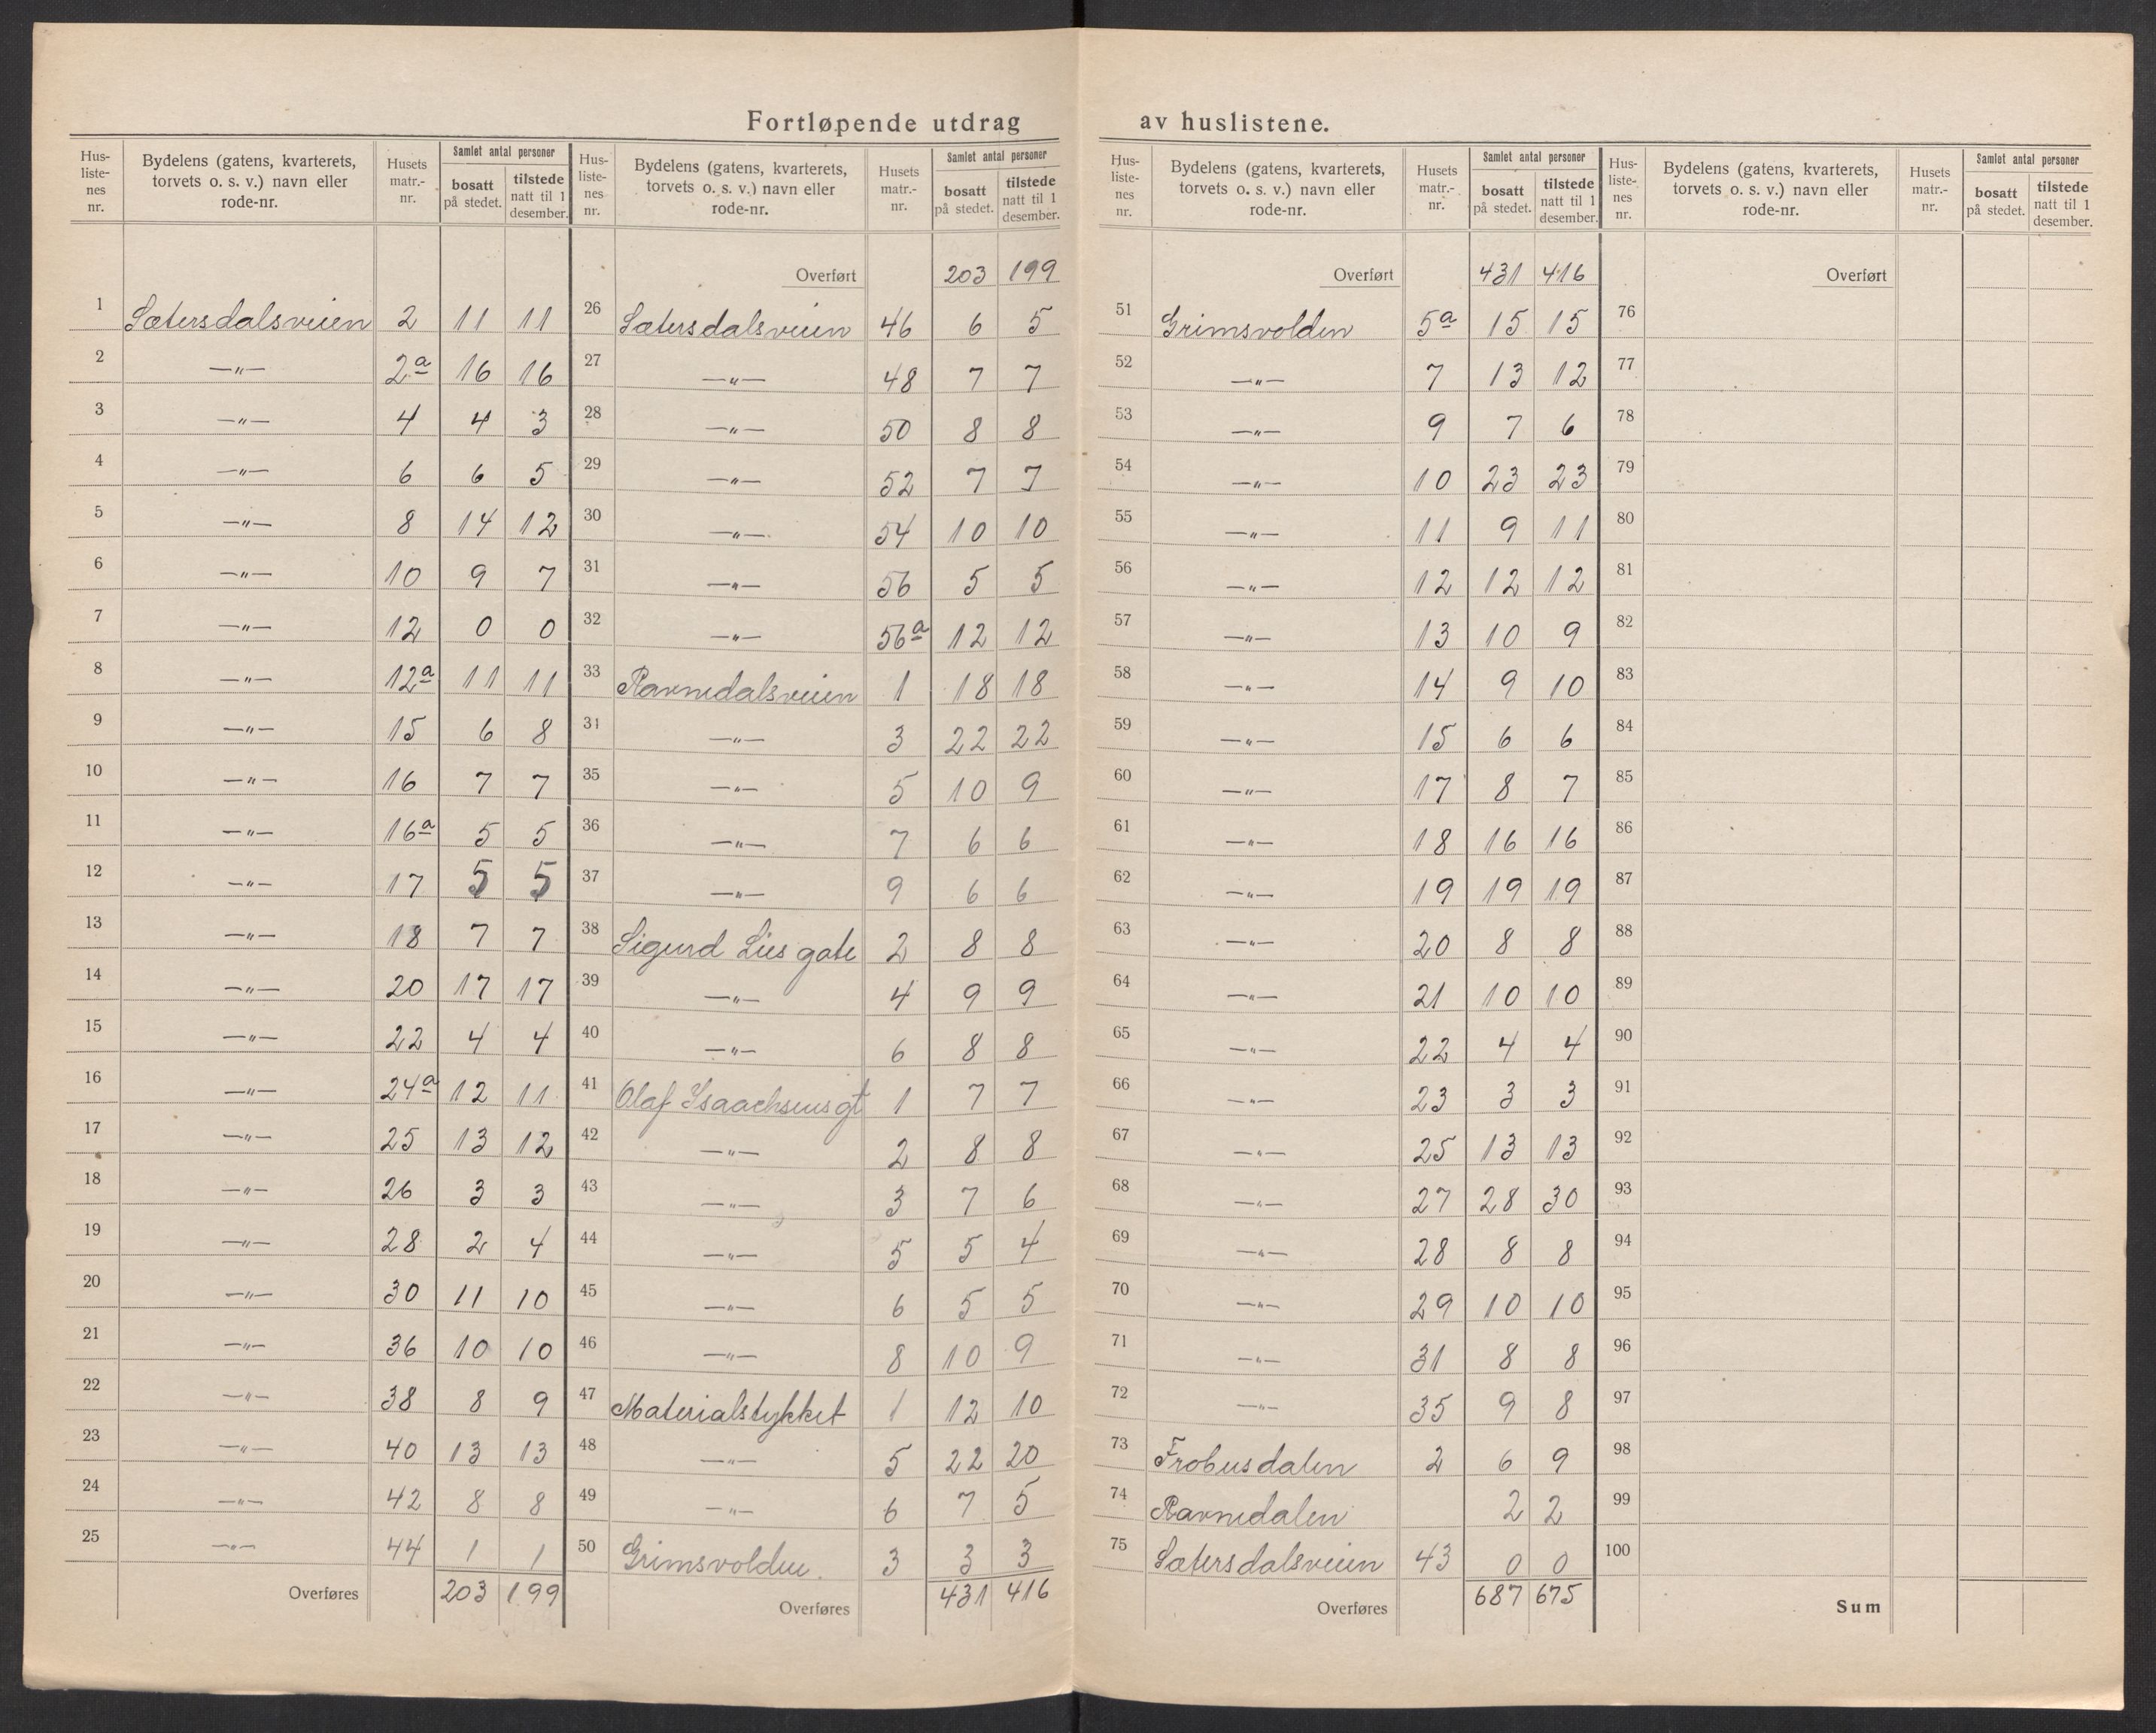 Fortløpende utdrag av huslistene.
Hus-listenes nr. | Bydelens (gatens, kvarterets, torvets o. s. v.) navn eller rode-nr. | Husets matr.-nr. | Samlet antal personer: bosatt på stedet. | tilstede natt til 1 desember.
1 Sætersdalsveien 2 11 11
2 —"— 2a 16 16
3 —"— 4 4 3
4 —"— 6 6 5
5 —"— 8 14 12
6 —"— 10 9 7
7 —"— 12 0 0
8 —"— 12a 11 11
9 —"— 15 6 8
10 —"— 16 7 7
11 —"— 16a 5 5
12 —"— 17 5 5
13 —"— 18 7 7
14 —"— 20 17 17
15 —"— 22 4 4
16 —"— 24a 12 11
17 —"— 25 13 12
18 —"— 26 3 3
19 —"— 28 2 4
20 —"— 30 11 10
21 —"— 36 10 10
22 —"— 38 8 9
23 —"— 40 13 13
24 —"— 42 8 8
25 —"— 44 1 1
Overføres 203 199
Hus-listenes nr. | Bydelens (gatens, kvarterets, torvets o. s. v.) navn eller rode-nr. | Husets matr.-nr. | Samlet antal personer: bosatt på stedet. | tilstede natt til 1 desember.
Overført 203 199
26 Sætersdalsveien 46 6 5
27 —"— 48 7 7
28 —"— 50 8 8
29 —"— 52 7 7
30 —"— 54 10 10
31 —"— 56 5 5
32 —"— 56a 12 12
33 Ravnedalsveien 1 18 18
31 —"— 3 22 22
35 —"— 5 10 9
36 —"— 7 6 6
37 —"— 9 6 6
38 Sigurd Lies gate 2 8 8
39 —"— 4 9 9
40 —"— 6 8 8
41 Olaf Isaachsens gt 1 7 7
42 —"— 2 8 8
43 —"— 3 7 6
44 —"— 5 5 4
45 —"— 6 5 5
46 —"— 8 10 9
47 Materialstykket 1 12 10
48 —"— 5 22 20
49 —"— 6 7 5
50 Grimsvolden. 3 3 3
Overføres 431 416
Hus-listenes nr. | Bydelens (gatens, kvarterets, torvets o. s. v.) navn eller rode-nr. | Husets matr.-nr. | Samlet antal personer: bosatt på stedet. | tilstede natt til 1 desember.
Overført 431 416
51 Grimsvolden 5a 15 15
52 —"— 7 13 12
53 —"— 9 7 6
54 —"— 10 23 23
55 —"— 11 9 11
56 —"— 12 12 12
57 —"— 13 10 9
58 —"— 14 9 10
59 —"— 15 6 6
60 —"— 17 8 7
61 —"— 18 16 16
62 —"— 19 19 19
63 —"— 20 8 8
64 —"— 21 10 10
65 —"— 22 4 4
66 —"— 23 3 3
67 —"— 25 13 13
68 —"— 27 28 30
69 —"— 28 8 8
70 —"— 29 10 10
71 —"— 31 8 8
72 —"— 35 9 8
73 Frobusdalen 2 6 9
74 Ravnedalen 2 2
75 Sætersdalsveien 43 0 0
Overføres 687 675
Hus-listenes nr. | Bydelens (gatens, kvarterets, torvets o. s. v.) navn eller rode-nr. | Husets matr.-nr. | Samlet antal personer: bosatt på stedet. | tilstede natt til 1 desember.
Overført
76
77
78
79
80
81
82
83
84
85
86
87
88
89
90
91
92
93
94
95
96
97
98
99
100
Sum